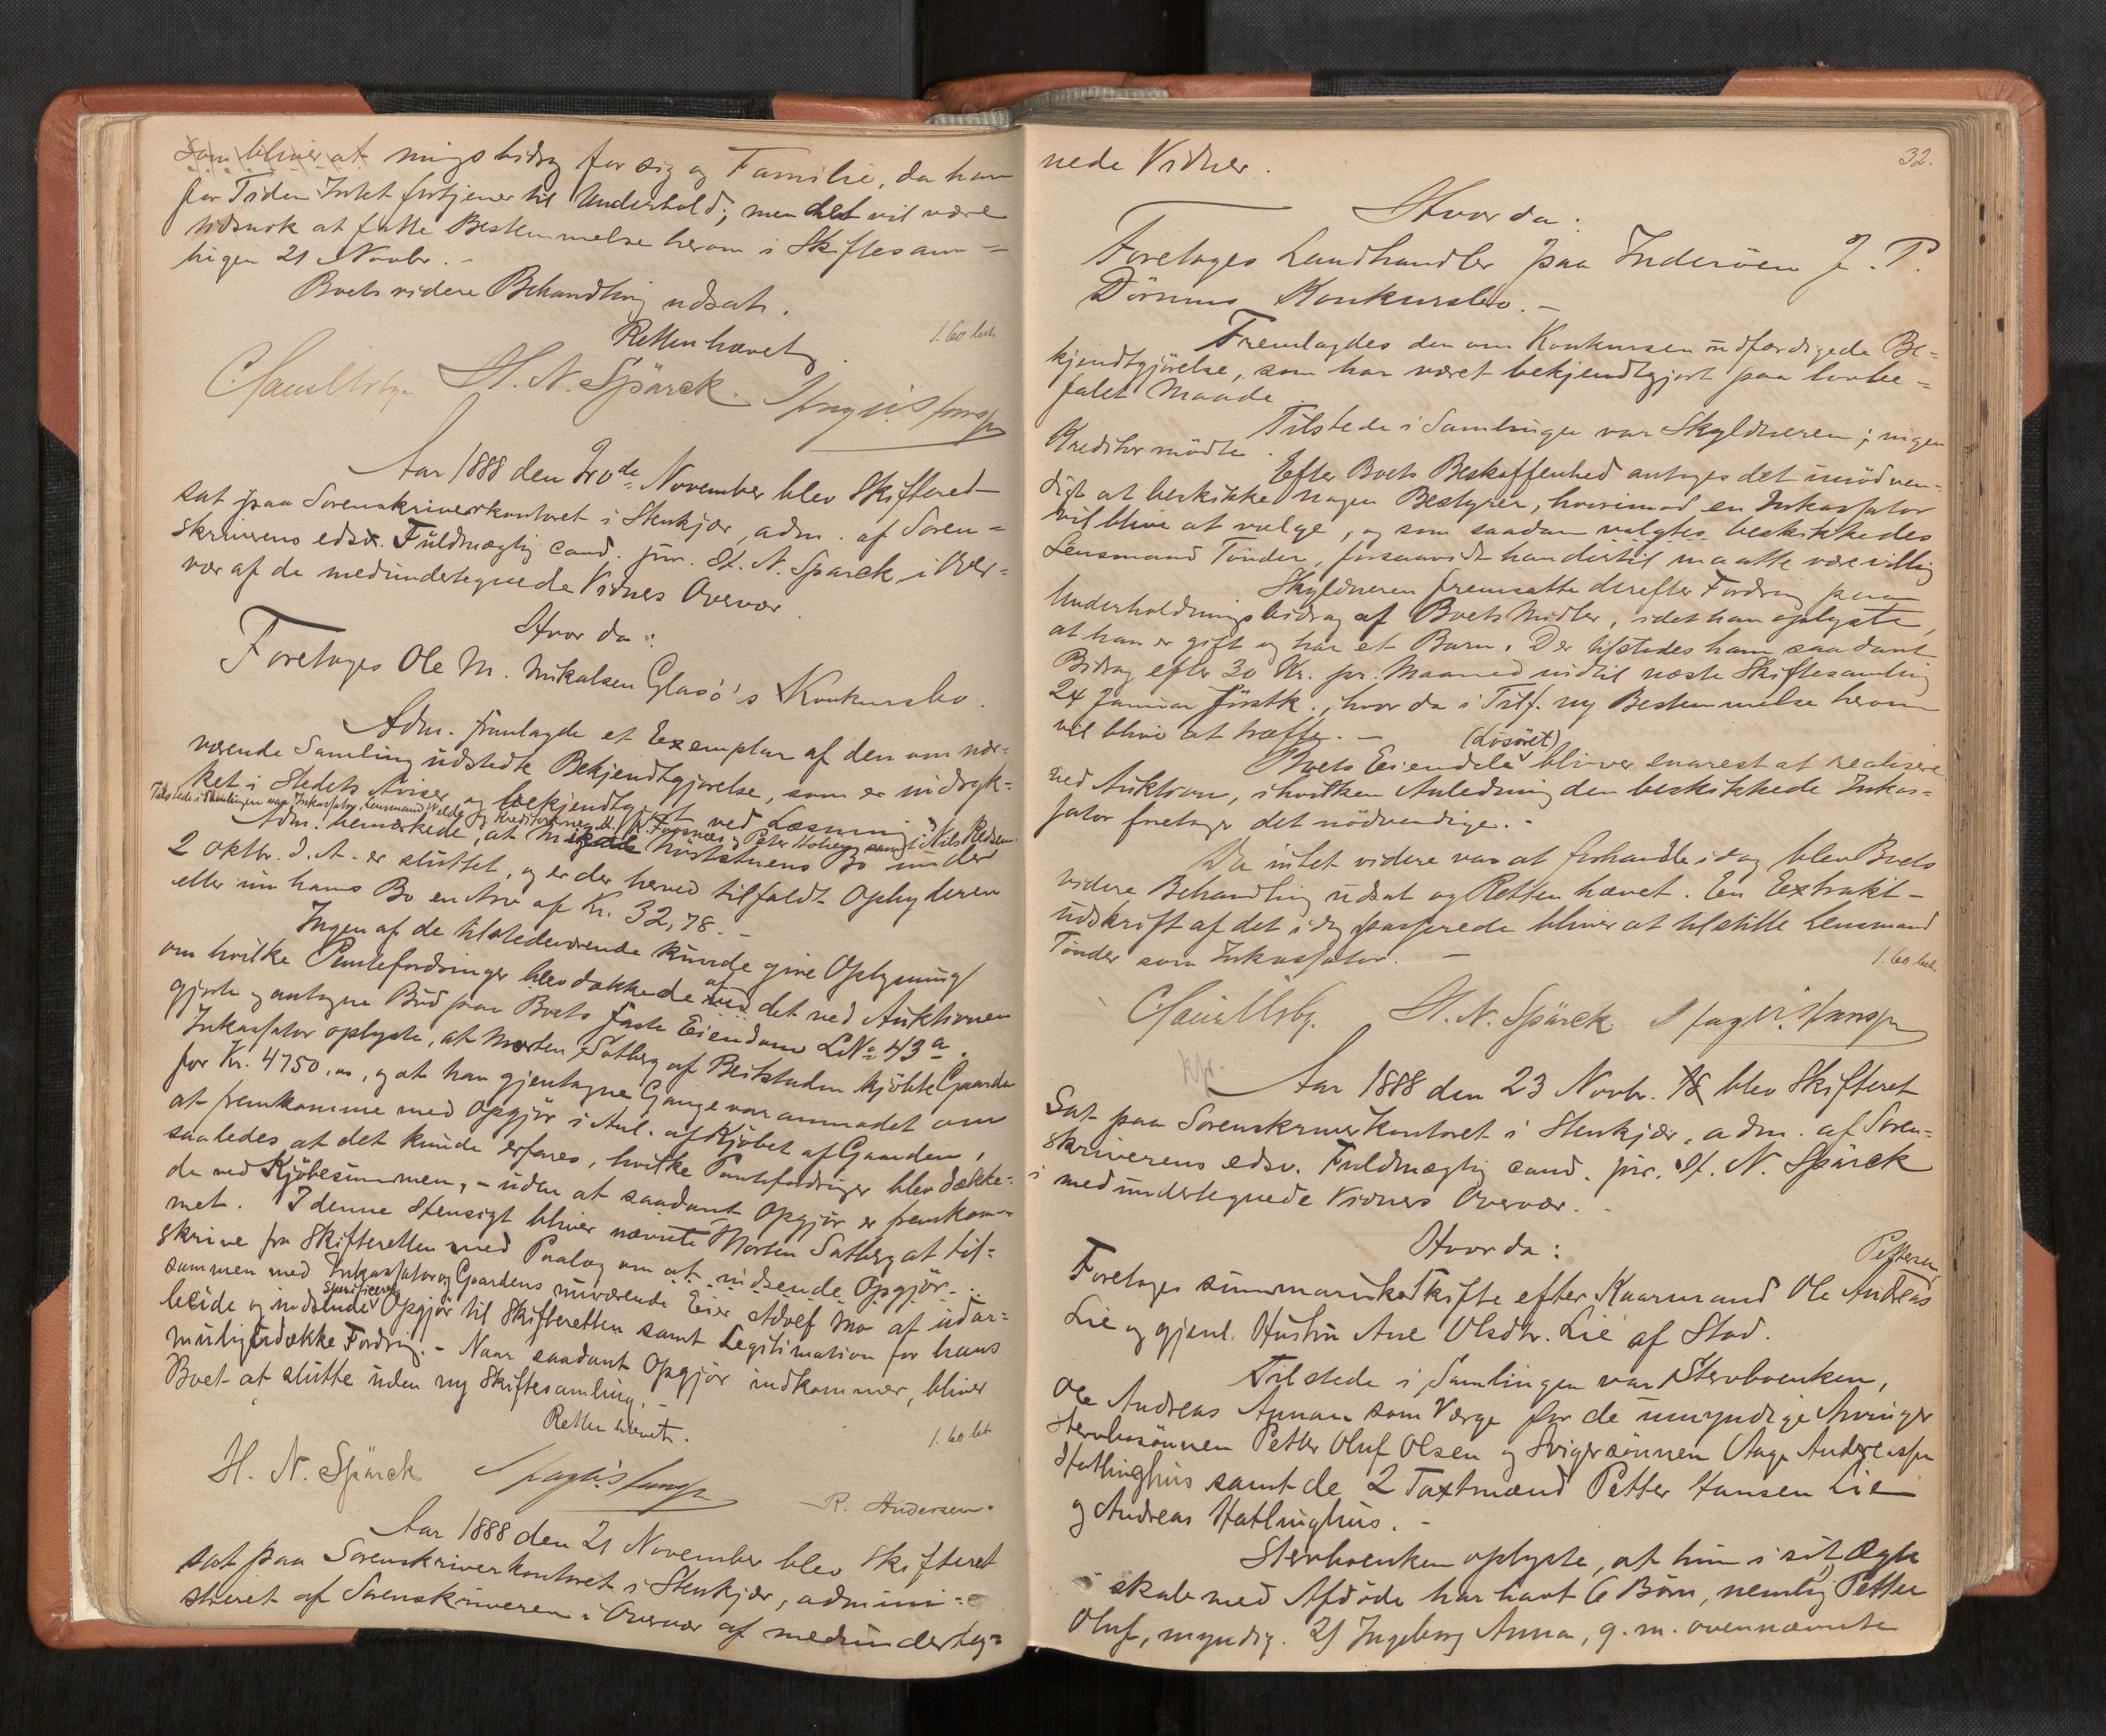 som bliver at ningsbidrag for sig og Familie, da han
for Tiden Intet fortjener til Underhold; men det vil være
tidsnok at fatte Bestemmelse herom i Skiftesam=
lingen 21 Novbr. -
Boets videre Behandling udsat.
Retten hævet
1.60 bet.
H. N. Spärck
Aar 1888 den 20de November blev Skifteret
sat paa Sorenskriverkontoret i Stenkjær, adm. af Soren=
skriverens edsv. Fuldmægtig cand. jur. H. N. Sparck i Over=
vær af de medundertegnede Vidners Overvær
Hvor da:
Foretages Ole M. Nikalsen Glasö's Konkursbo.
Adm. fremlagde et Exemplar af den om nær=
værende Samling udstedte Bekjendtgjørelse, som er indryk=
ket i Stedets Aviser og bekjendtgjort ved Læsning
Tilstede i Samlingen var Inkassator, Lensmand Welde og Kreditorerne Peter Holberg samt Nils
Adm. bemærkede, at Höststuens Bo under
2 Oktbr. d. A. er sluttet, og er der herved tilfaldt Opbyderen
eller nu hans Bo en Arv af Kr. 32,78. -
Ingen af de tilstedeværende kunde give Oplysning
om hvilke Pantefordringer blev dækkede af det ved Auktionen
gjorte og antagne Bud paa Boets faste Eiendom LNo 43a.
Inkassator oplyste, at Morten Sotberg af Beitstaden kjöbte Gaarden
for Kr. 4750.00, og at han gjentagne Gange var anmodet om
at fremkomme med Opgjör i Anl. af Kjöbet af Gaarden,
saaledes at det kunde erfares, hvilke Pantefordringer blev dække=
de ved Kjöbesummen, - uden at saadant Opgjör er fremkom=
met. I denne Hensigt bliver nævnte Morten Satberg at til=
skrive fra Skifteretten med Paalæg om at indsende Opgjör -
sammen med Inkassator og Gaardens nuværende Eier Adolf Mo at udar=
beide og indsende specificeret Opgjör til Skifteretten samt Legitimation for hans
mulig udække Fordring. - Naar saadant Opgjör indkommer, bliver
Boet at slutte uden ny Skiftesamling. -
Retten hævet.
1.60 bet
H. N. Spärck
R. Andersen.
Aar 1888 den 21 November blev Skifteret
sat paa Sorenskriverkontoret i Stenkjær, admini=
streret af Sorenskriveren i Overvær af medunderteg=
32.
nede Vidner.
Hvor da:
Foretages Landhandler paa Inderöen J. P.
Dörums Konkursbo. -
Fremlagdes den om Konkursen udfærdigede Be=
kjendtgjörelse, som har været bekjendtgjort paa lovbe=
falet Maade.
Tilstede i Samlingen var Skyldneren; ingen
Kreditor mödte.
Efter Boets Beskaffenhed antages det unödven=
digt at beskikke nogen Bestyrer, hvorimod en Inkassator
vil blive at vælge, og som saadan valgtes beskikkedes
Lensmand Tönder, forsaavidt han dertil maatte være villig
Skyldneren fremsatte derefter Fordring paa
Underholdningsbidrag af Boets Midler, idet han oplyste,
at han er gift og har et Barn. Der tilstedes ham saadant
Bidrag efter 30 Kr. pr. Maaned indtil næste Skiftesamling
24 Januar förstk., hvor da i Tilf. ny Bestemmelse herom
vil blive at træffe. -
(Lösöret)
Boets Eiendele bliver snarest at realisere
ved Auktion, i hvilken Anledning den beskikkede Inkas=
sator foretager det nödvendige. -
Da intet videre var at forhandle idag blev Boets
videre Behandling udsat og Retten hævet. En Extrakt-
udskrift af det idag passerede bliver at tilstille Lensmand
Tönder som Inkassator. -
1.60 bet.
H. N. Spärck
Aar 1888 den 23 Novbr. 18 blev Skifteret
Sat paa Sorenskriverkontoret i Stenkjær, adm. af Soren=
skriverens edsv. Fuldmægtig cand. jur. H. N. Spärck
i medundertegnede Vidners Overvær. -
Hvor da:
Pettersen
Foretages summarisk Skifte efter Kaarmand Ole Andreas
Lie og gjenl. Hustru Ane Olsdtr. Lie af Stod.
Tilstede i Samlingen var Stervboenken,
Ole Andreas Aunan som Værge for de umyndige Arvinger
Stervbosönnen Petter Oluf Olsen og Svigersönnen Aage Andreassen
Hatlinghus samt de 2 Taxtmænd Petter Hansen Lie
og Andreas Hatlinghus. -
Stervboenken oplyste, at hun i sit Ægte
skab med Afdöde har havt 6 Börn, nemlig Petter
Oluf, myndig. 2) Ingeborg Anna, g. m. ovennævnte